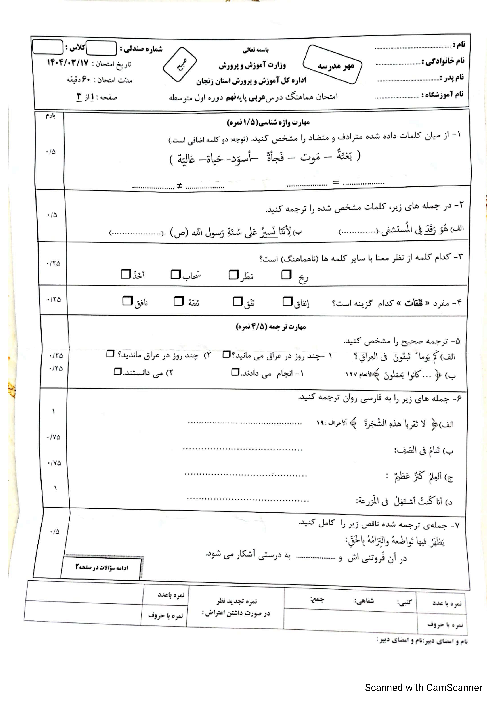 نام :
نام خانوادگی :
نام پدر :
نام آموزشگاه :
مهر مدرسه
باسمه تعالی
وزارت آموزش و پرورش
اداره کل آموزش و پرورش استان زنجان
امتحان هماهنگ درس عربی پایه نهم دوره اول متوسطه
شماره صندلی : کلاس :
تاریخ امتحان : ۱۴۰۴/۰۳/۱۷
مدت امتحان : ۶۰ دقیقه
صفحه : ۱ از ۴
بارم
مهارت واژه شناسی (۱/۵ نمره)
۱- از میان کلمات داده شده مترادف و متضاد را مشخص کنید. (توجه: دو کلمه اضافی است )
( بَغتَةً – مَوت – فَجأةً – أسوَد- حَیاة- عالیَة )
............ = ............ ............ ≠ ............
۰/۵
۲- در جمله های زیر، کلمات مشخص شده را ترجمه کنید.
الف) هُوَ رَقَدَ فِی المُستَشفی (............) ب) لِأَنَّنا نَسیرُ عَلی سُنَّةِ رَسولِ اللهِ (ص) (............)
۰/۵
۳- کدام کلمه از نظر معنا با سایر کلمه ها (ناهماهنگ) است؟
ریح □ مَطَر □ سَحاب □ أخَذَ □
۰/۲۵
۴- مفرد « نَفَقات » کدام گزینه است؟ إنفاق □ نَفَق □ نَفَقَة □ نافق □
۰/۲۵
مهارت ترجمه (۴/۵ نمره)
۵- ترجمه صحیح را مشخص کنید.
الف) کَم یَوماً تَبقَونَ فی العِراقِ؟ ۱ -چند روز در عراق می مانید؟□ ۲) چند روز در عراق ماندید؟ □
۰/۲۵
ب) ﴿ ... کانوا یَعمَلونَ ﴾ الأنعام ۱۲۷ ۱- انجام می دادند.□ ۲) می دانستند.□
۰/۲۵
۶- جمله های زیر را به فارسی روان ترجمه کنید.
الف)﴿ لا تَقرَبا هذِهِ الشَّجَرَةَ ﴾ الأعراف :۱۹
۱
ب) تَنامُ فی الصَّفِ:
۰/۷۵
ج) اَلعِلمُ کَنزٌ عَظیمٌ :
۰/۷۵
د) أنا کُنتُ أشتَغِلُ فی المَزرَعَةِ:
۱
۷- جمله‌ی ترجمه شده ناقص زیر را کامل کنید.
یَظهَرُ فیها تَواضُعُهُ وَالتِزامُهُ بِالحَقِّ:
در آن فروتنی اش و ............ به درستی آشکار می شود.
۰/۵
ادامه سؤالات در صفحه۲
نمره با عدد
نمره با حروف
کتبی: شفاهی: جمع:
نمره تجدید نظر
در صورت داشتن اعتراض :
نمره با عدد
نمره با حروف
نام و امضای دبیر:نام و امضای دبیر:
Scanned with CamScanner